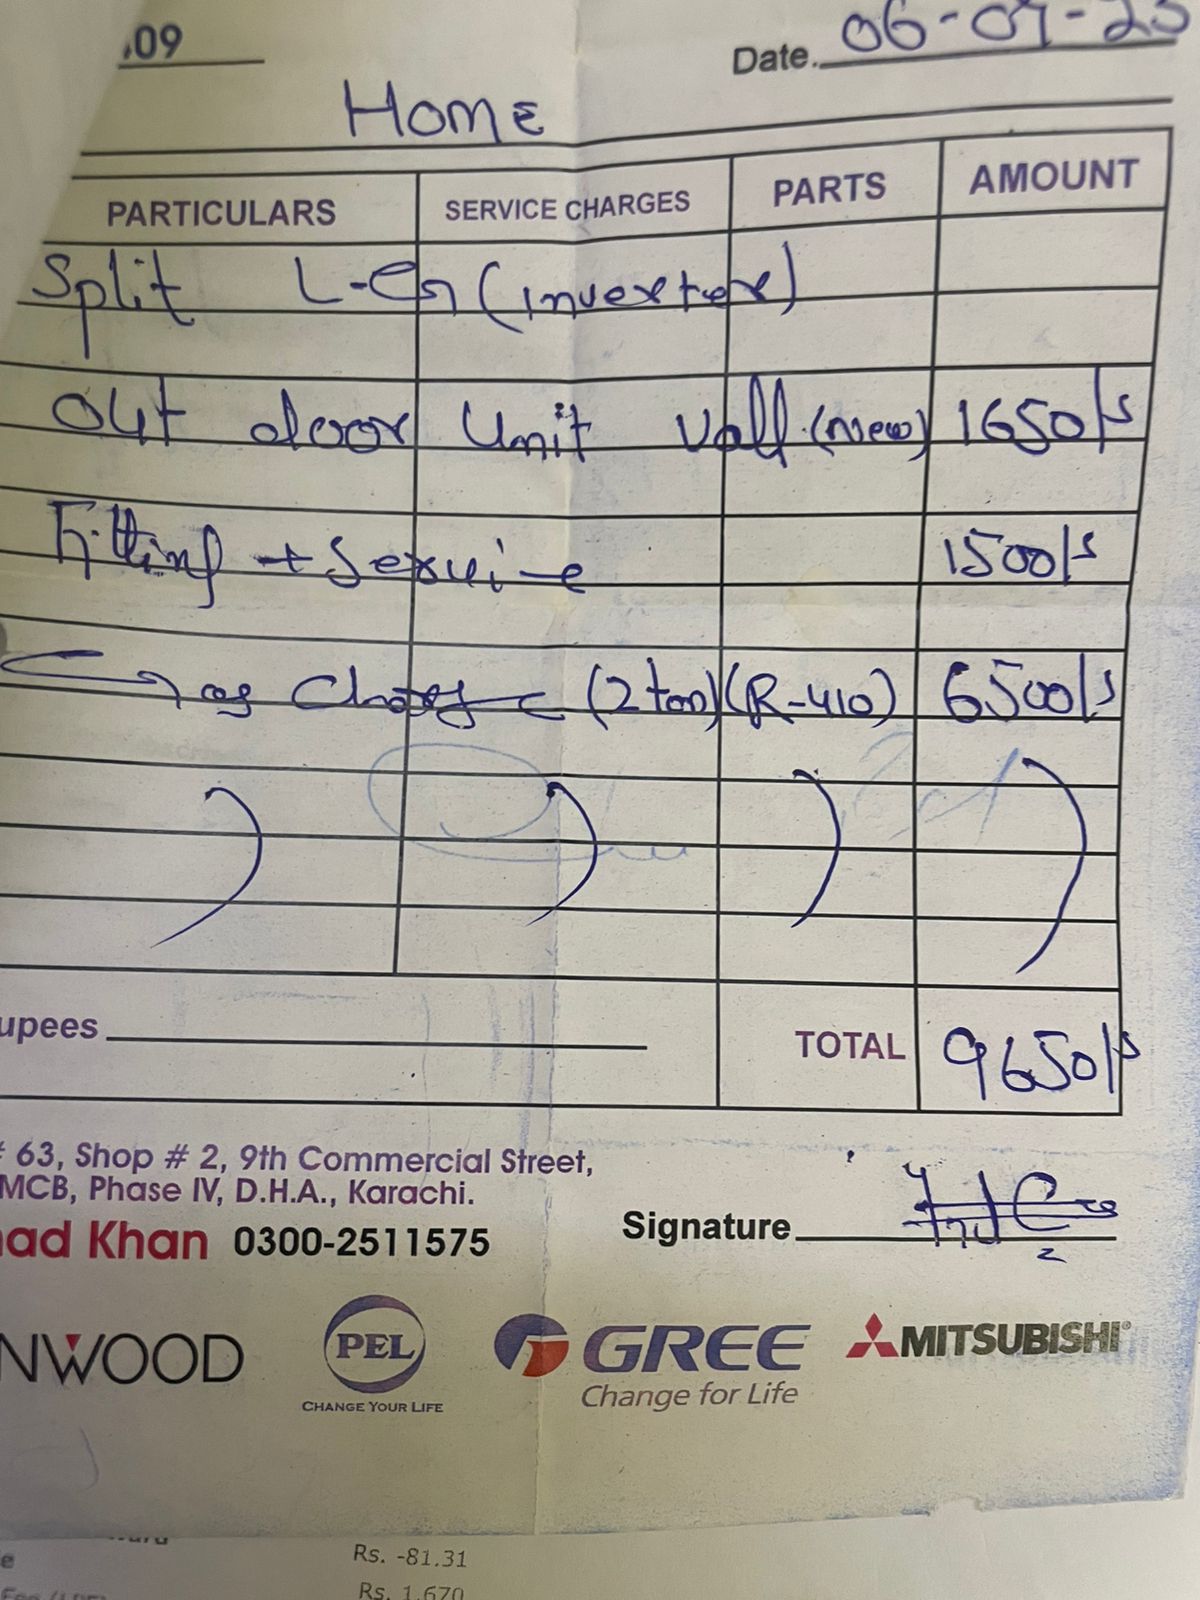 .09
Date. 06-07-23
Home
PARTICULARS SERVICE CHARGES PARTS AMOUNT
Split L-G (inverter)
Out door Unit Vall (new) 1650/s
Fitting + Service 1500/s
Gas Charge (2 ton) (R-410) 6500/s
upees
TOTAL 9650/s
# 63, Shop # 2, 9th Commercial Street,
MCB, Phase IV, D.H.A., Karachi.
ad Khan 0300-2511575
Signature
NWOOD
PEL
CHANGE YOUR LIFE
GREE
Change for Life
MITSUBISHI
Rs. -81.31
Rs. 1,670